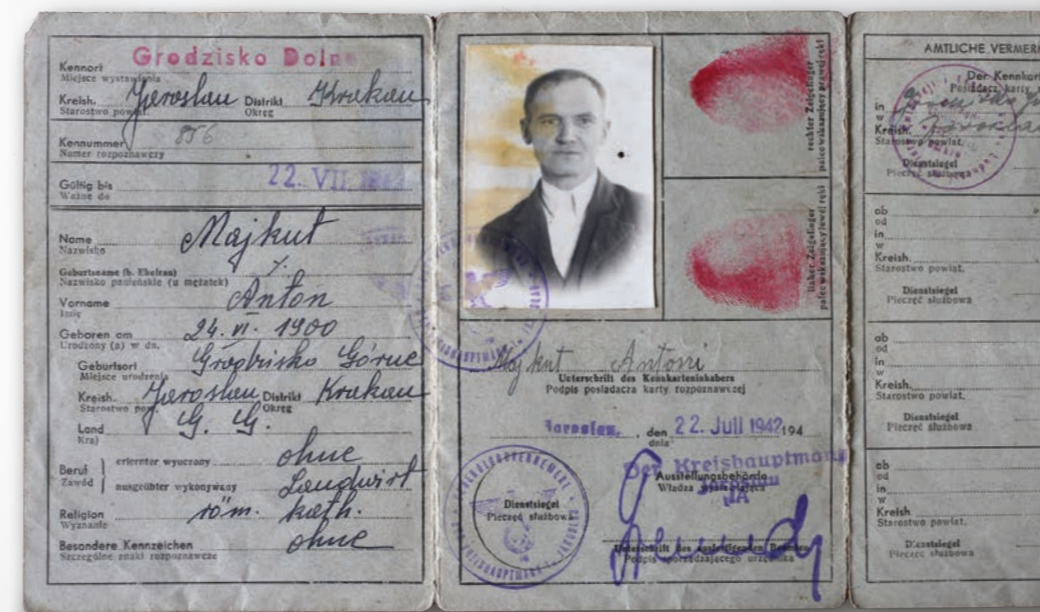 Grodzisko Dolne
Kennort
Miejsce wystawienia
Kreish. Jaroslau Distrikt Krakau
Starostwo powiat. Okręg
Kennummer 856
Numer rozpoznawczy
Gültig bis 22. VII.
Ważne do
Name Majkut
Nazwisko
Geburtsname (b. Ehefrau)
Nazwisko panieńskie (u mężatek)
Vorname Anton
Imię
Geboren am 24. VI. 1900
Urodzony (a) w dn.
Geburtsort Grodzisko Górne
Miejsce urodzenia
Kreish. Jaroslau Distrikt Krakau
Starostwo pow. Okręg
Land G. G.
Kraj
Beruf erlernter wyuczony ohne
Zawód ausgeübter wykonywany Landwirt
Religion röm. kath.
Wyznanie
Besondere Kennzeichen ohne
Szczególne znaki rozpoznawcze
rechter Zeigefinger
palec wskazujący prawej ręki
linker Zeigefinger
palec wskazujący lewej ręki
Majkut Antoni
Unterschrift des Kennkarteninhabers
Podpis posiadacza karty rozpoznawczej
Jaroslau, den 22. Juli 1942 194
dnia
Der Kreishauptmann
Ausstellungsbehörde
Władza wystawiająca
Jaroslau
JA
Dienstsiegel
Pieczęć służbowa
Unterschrift des ausfertigenden Beamten
Podpis sporządzającego urzędnika
AMTLICHE VERMER
Der Kennkart
Posiadacz karty
in
w
Kreish.
Starostwo powiat.
Dienstsiegel
Pieczęć służbowa
ab
od
in
w
Kreish.
Starostwo powiat.
Dienstsiegel
Pieczęć służbowa
ab
od
in
w
Kreish.
Starostwo powiat.
Dienstsiegel
Pieczęć służbowa
ab
od
in
w
Kreish
Starostwo powiat.
Dienstsiegel
Pieczęć służbowa